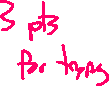 3 pts
for trying